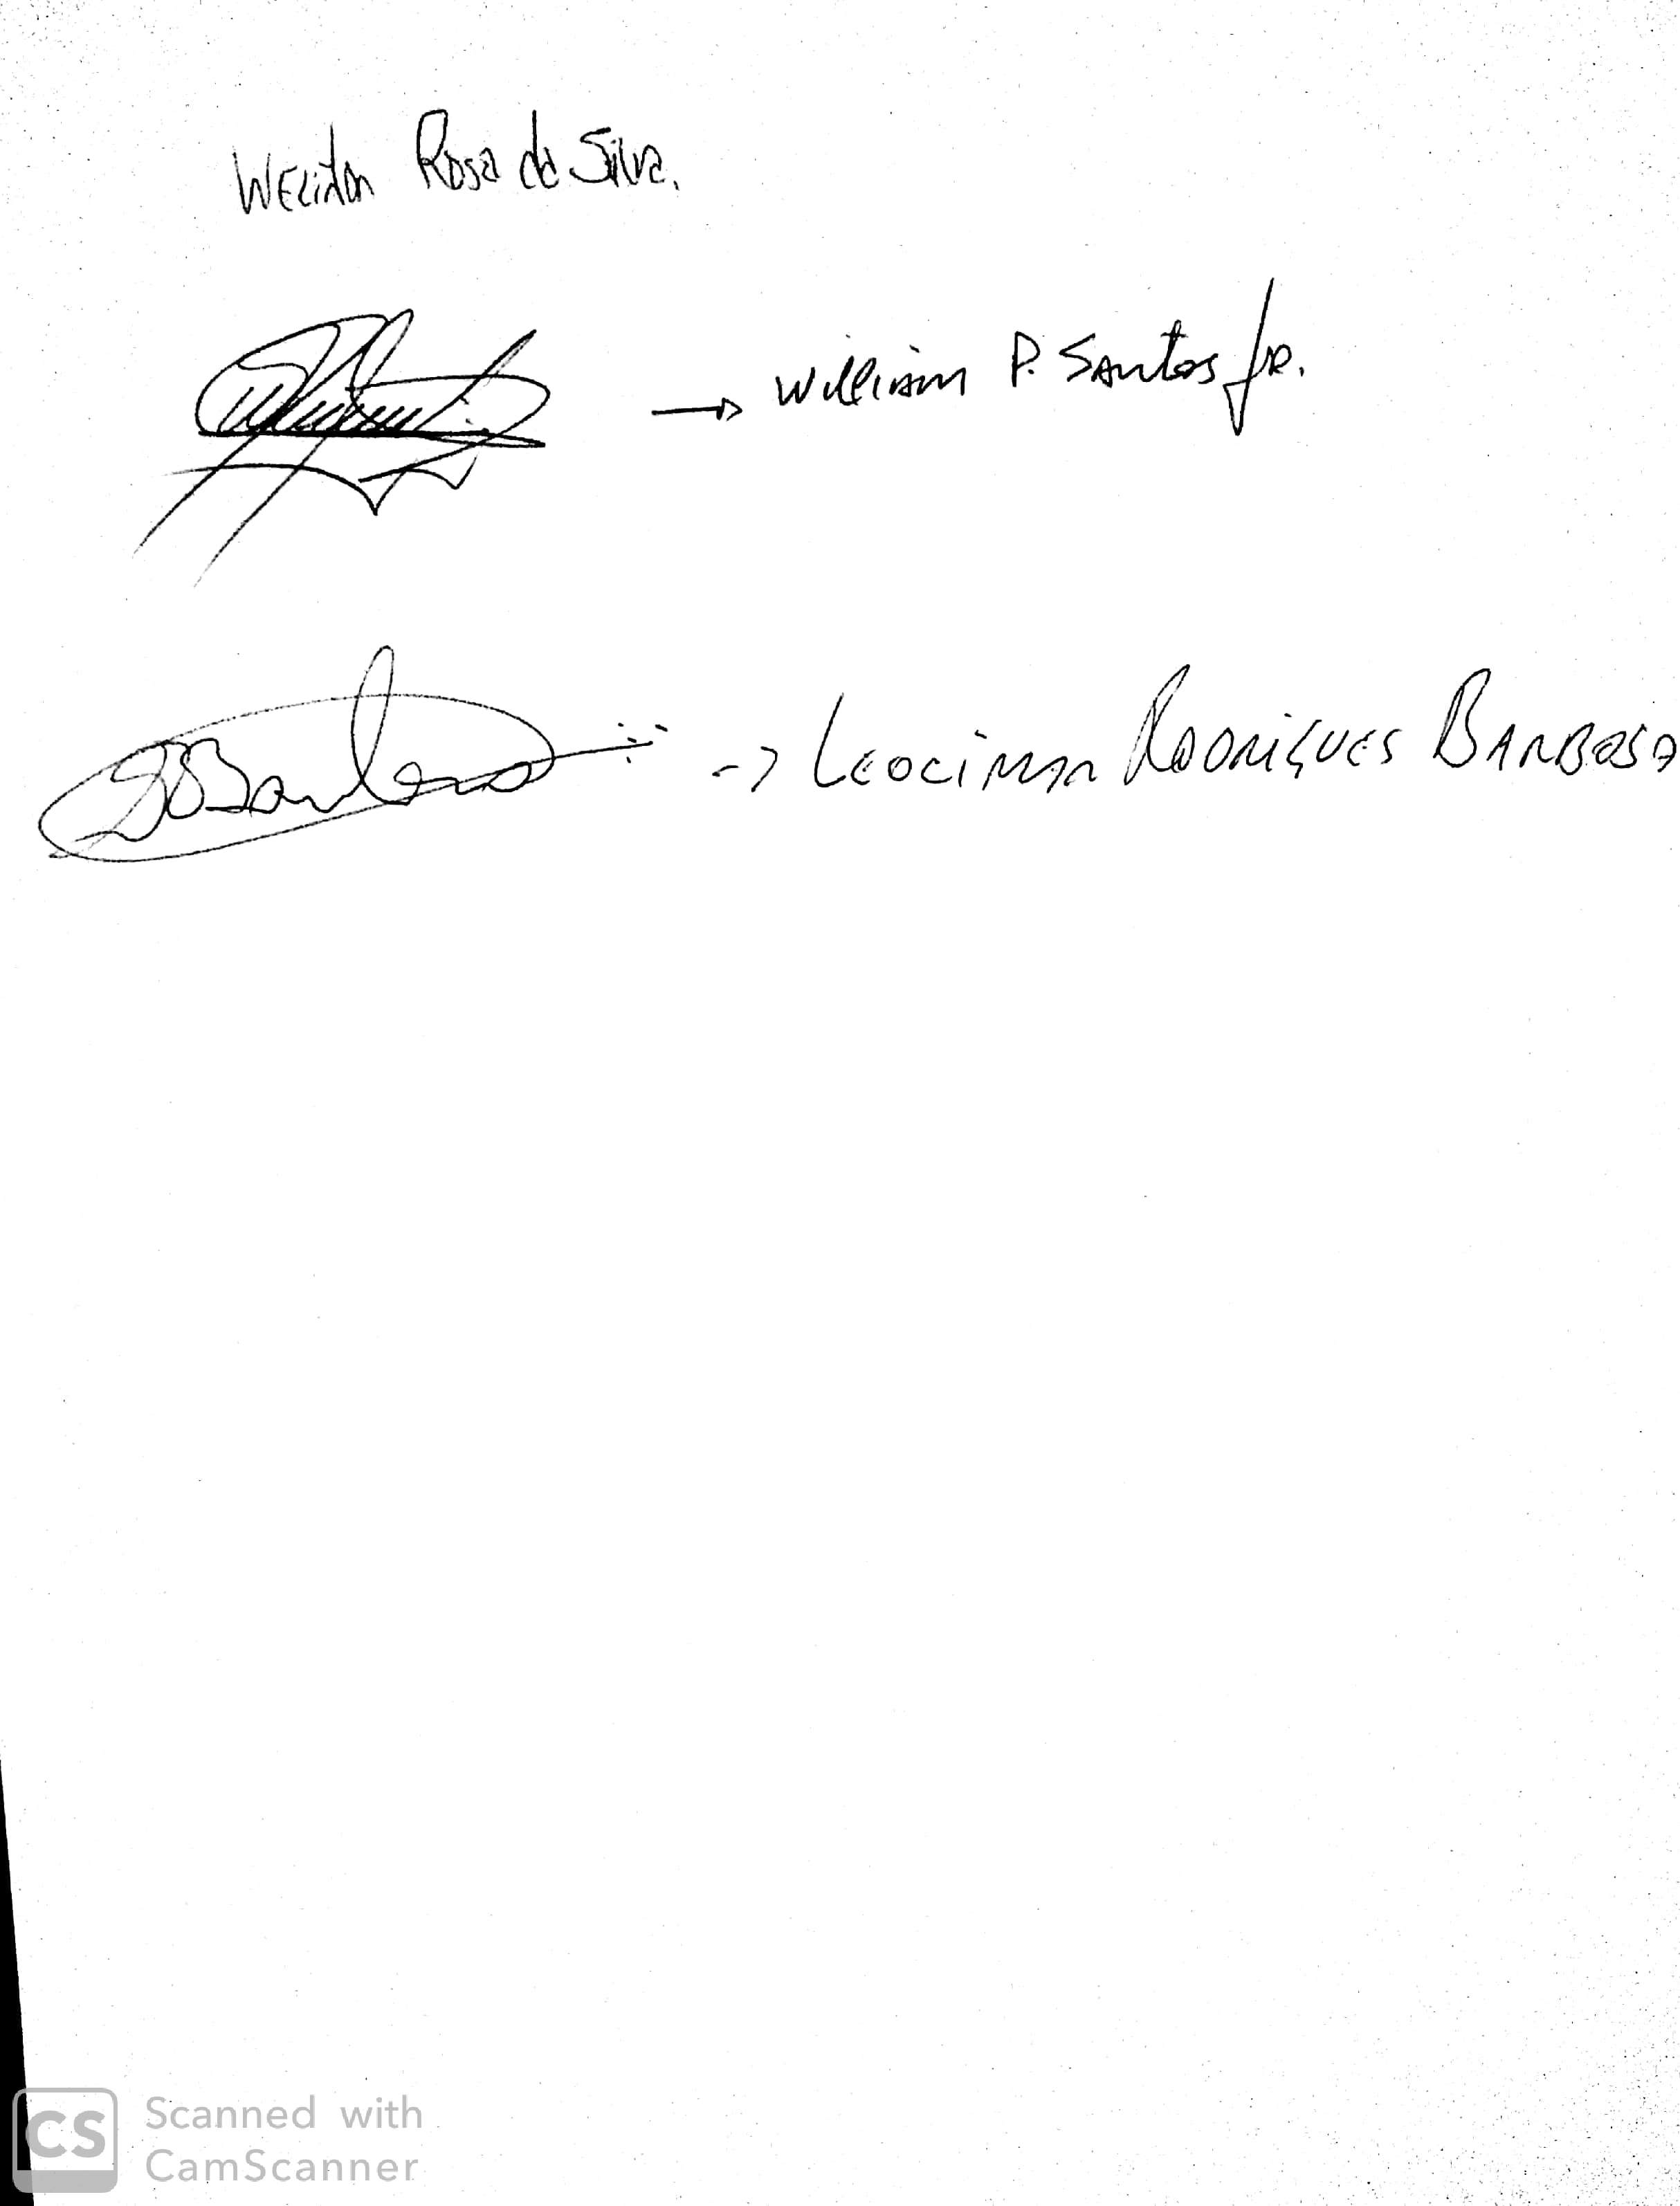 Weliton Rosa da Silva.
→ William P. Santos Jr.
-> Leocimar Rodrigues Barbosa
CS Scanned with
CamScanner